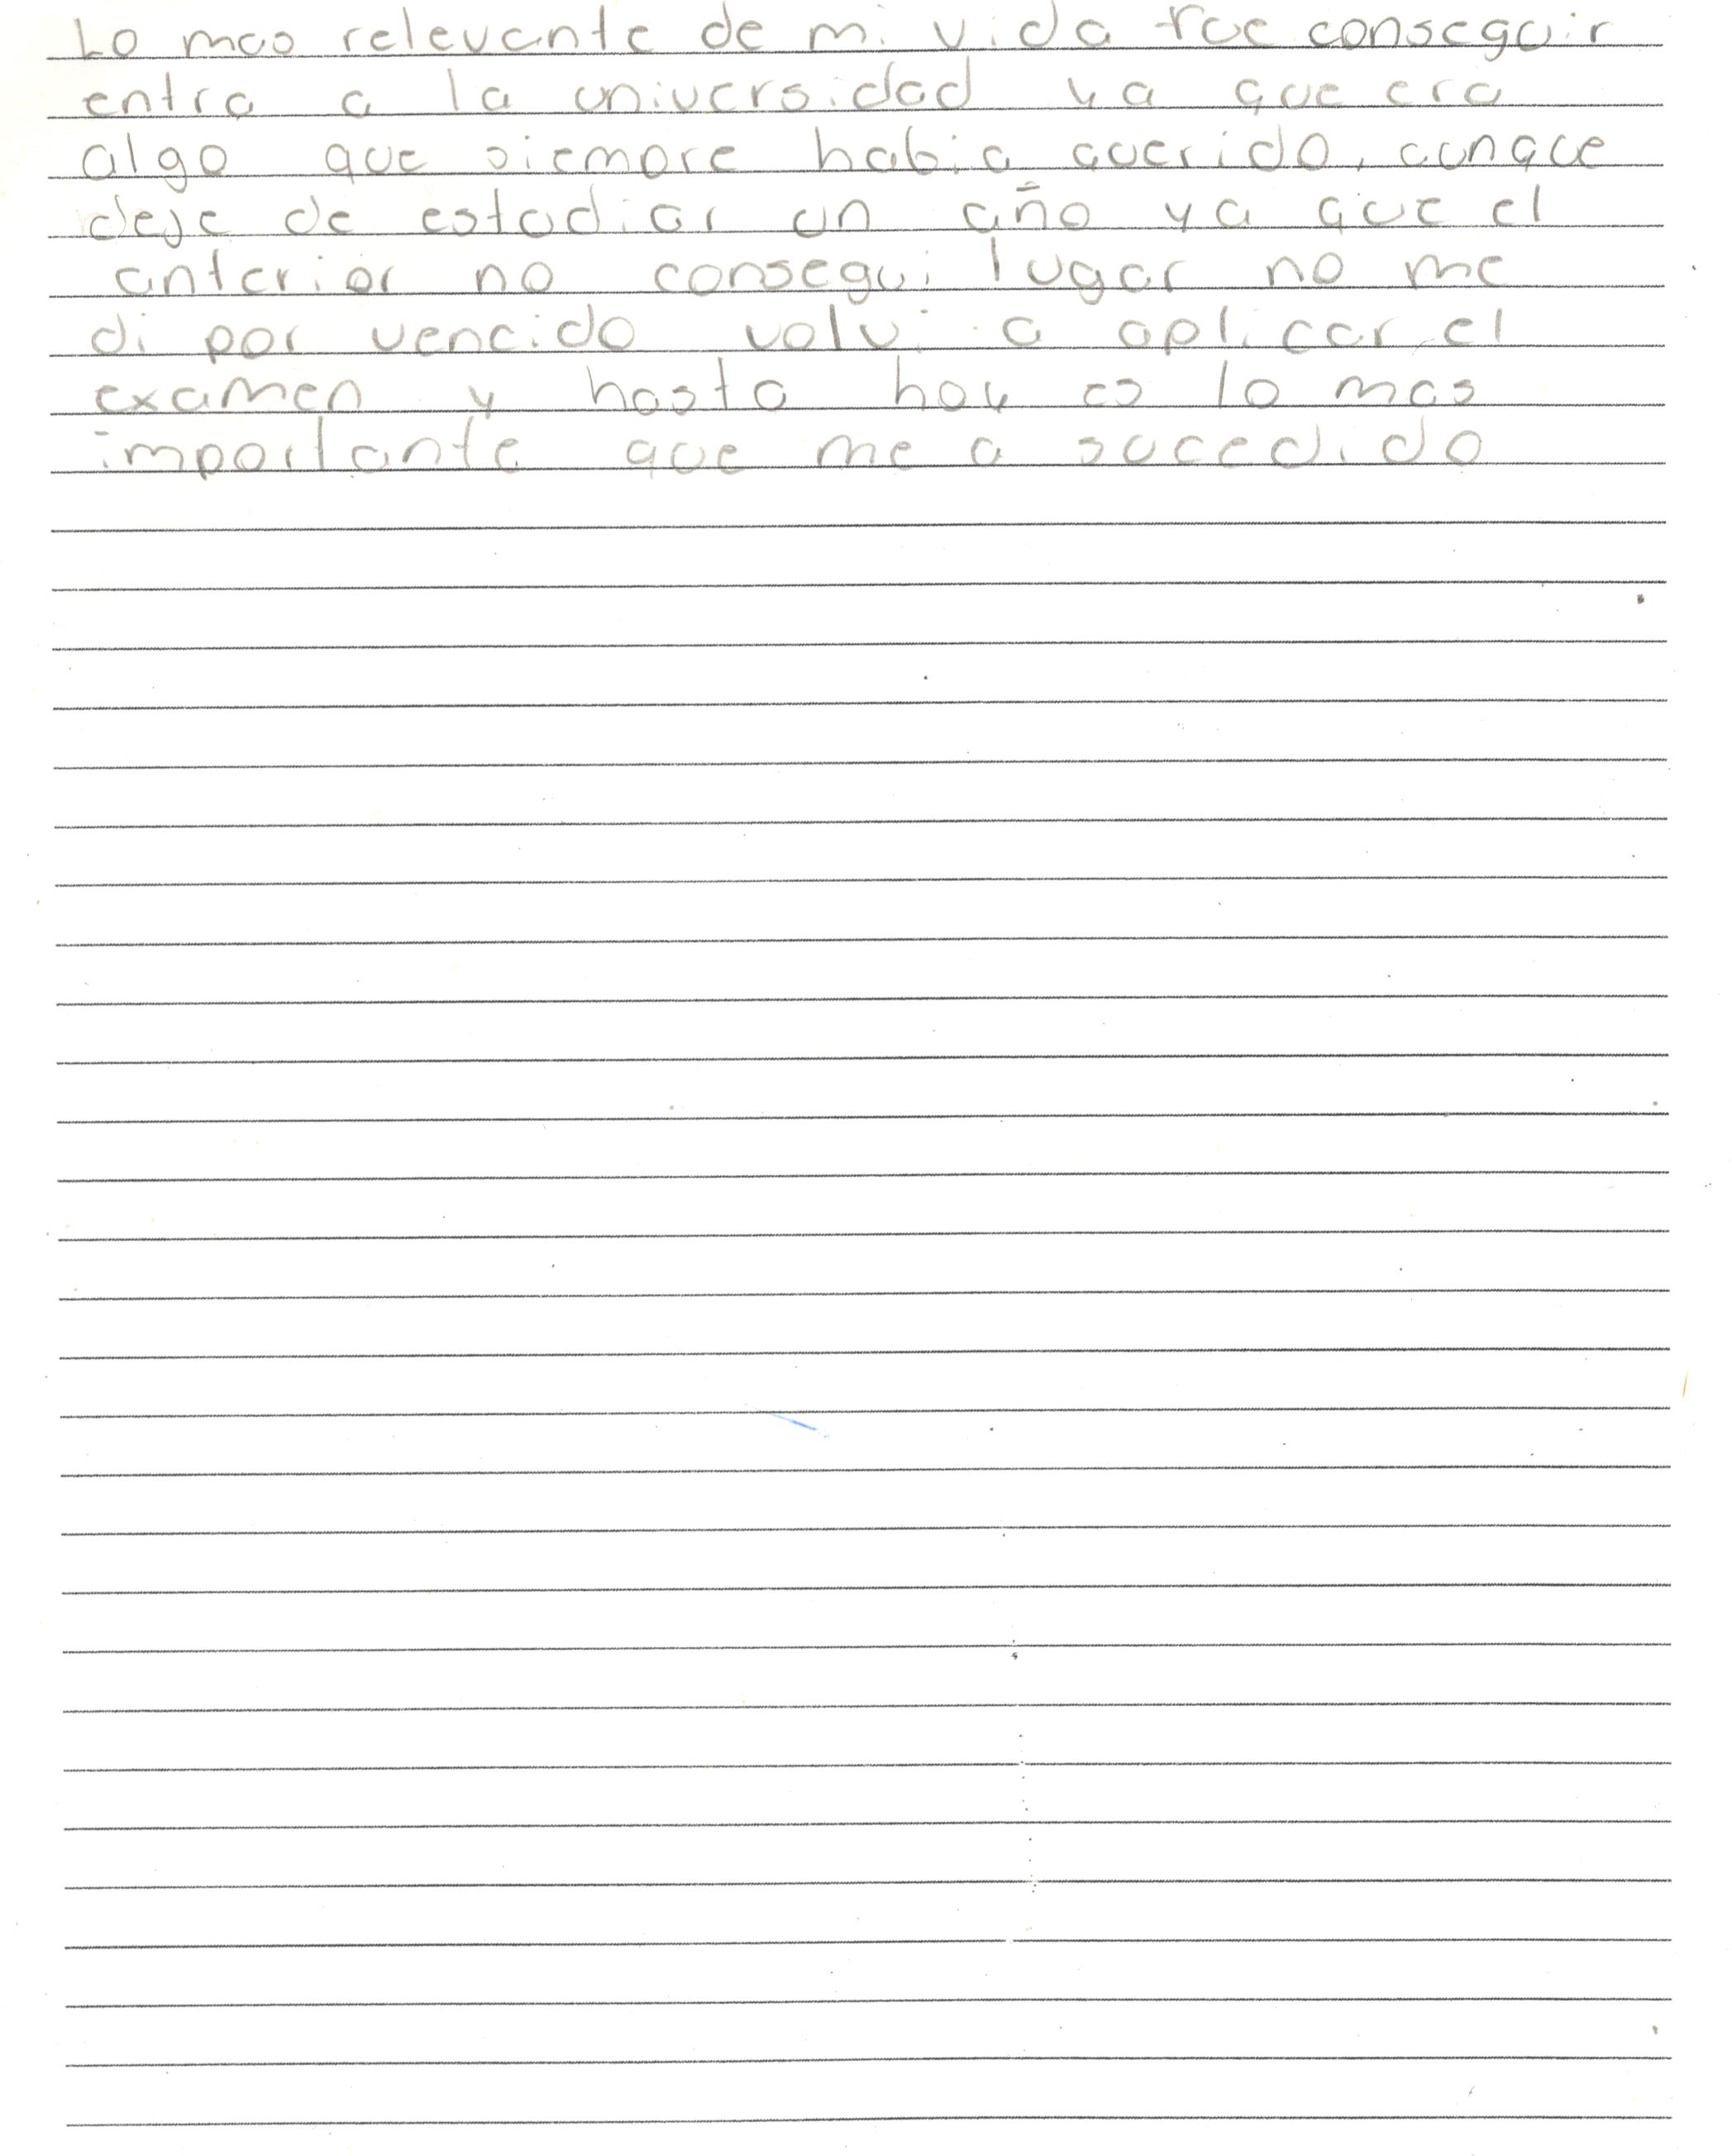 Lo mas relevante de mi vida fue conseguir
entra a la universidad ya que era
algo que siempre habia querido, aunque
deje de estudiar un año ya que el
anterior no consegui lugar no me
di por vencido volvi a aplicar el
examen y hasta hoy es lo mas
importante que me a sucedido